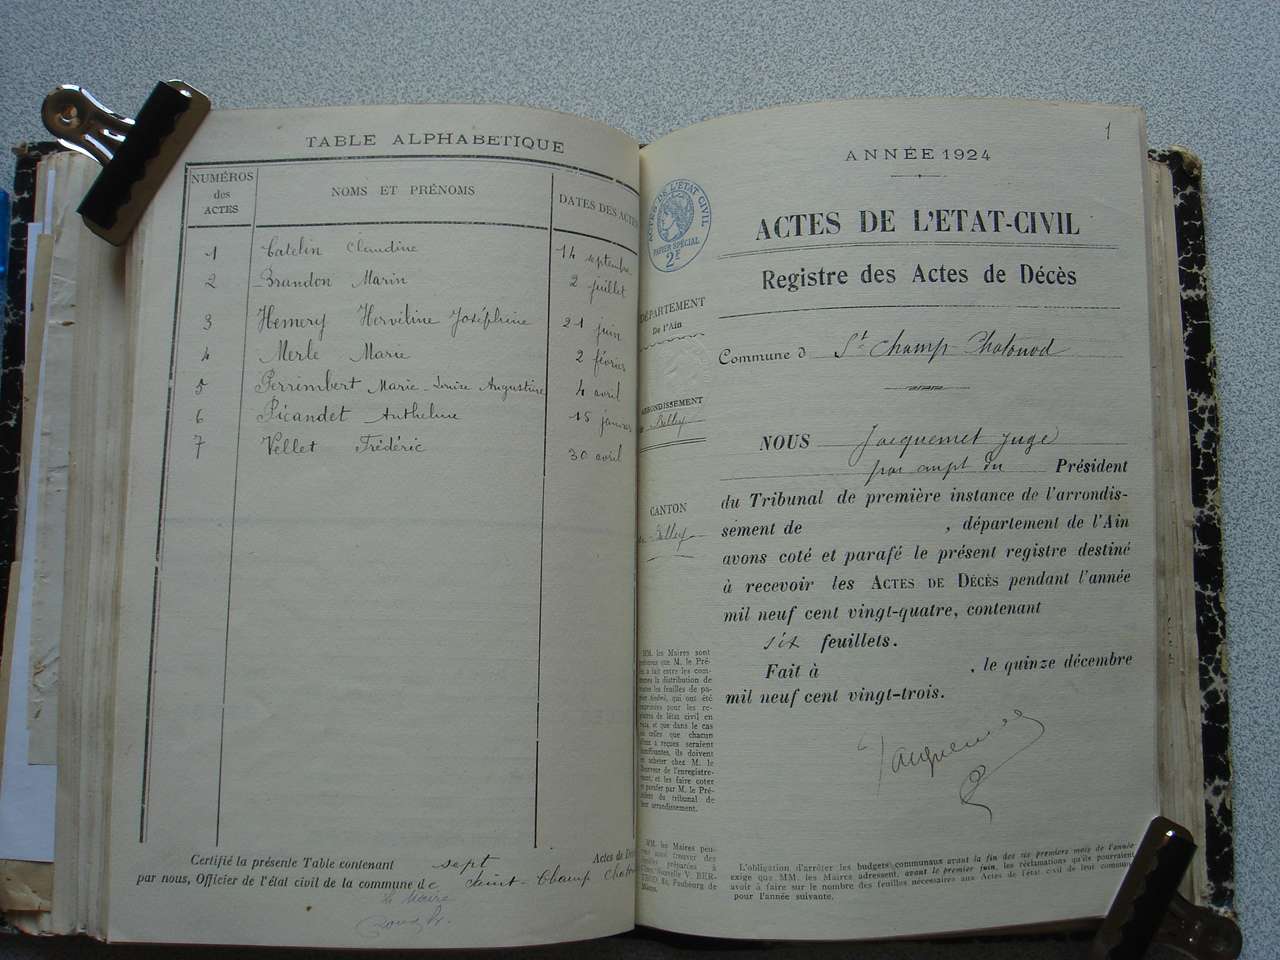 TABLE ALPHABETIQUE
NUMÉROS des ACTES
NOMS ET PRÉNOMS
DATES DES ACTES
1 Catelin Claudine 14 septembre
2 Brandon Marin 2 juillet
3 Hemery Herveline Joséphine 21 juin
4 Merle Marie 2 février
5 Perrembert Marie-Louise Augustine 4 avril
6 Picandet Anthelme 15 janvier
7 Vellet Frédéric 30 avril
Certifié la présente Table contenant sept Actes de
par nous, Officier de l'état civil de la commune de Saint-Champ
le Maire
1
ANNÉE 1924
ACTES DE L'ETAT CIVIL
PAPIER SPÉCIAL
2F
ACTES DE L'ETAT-CIVIL
Registre des Actes de Décès
DÉPARTEMENT
De l'Ain
Commune d St Champ Chatonod
ARRONDISSEMENT
Belley
NOUS Jacquemet juge
par empt du Président
du Tribunal de première instance de l'arrondis-
sement de , département de l'Ain
avons coté et parafé le présent registre destiné
à recevoir les ACTES DE DÉCÈS pendant l'année
mil neuf cent vingt-quatre, contenant
six feuillets.
Fait à , le quinze décembre
mil neuf cent vingt-trois.
Jacquemet
CANTON
Belley
MM. les Maires sont
prévenus que M. le Pré-
fet a fait entre les com-
munes la distribution de
toutes les feuilles de pa-
pier timbré, qui ont été
imprimées pour les re-
gistres de l'état civil en
et que dans le cas
où celles que chacun
d'eux a reçues seraient
insuffisantes, ils doivent
en acheter chez M. le
Receveur de l'enregistre-
ment, et les faire coter
et parafer par M. le Pré-
sident du tribunal de
leur arrondissement.
MM. les Maires peu-
vent aussi trouver des
feuilles préparées à
Nouvelle V. BER-
Faubourg de
Mâcon.
L'obligation d'arrêter les budgets communaux avant la fin des six premiers mois de l'année
exige que MM. les Maires adressent, avant le premier juin, les réclamations qu'ils pourraient
avoir à faire sur le nombre des feuilles nécessaires aux Actes de l'état civil de leur commune
pour l'année suivante.